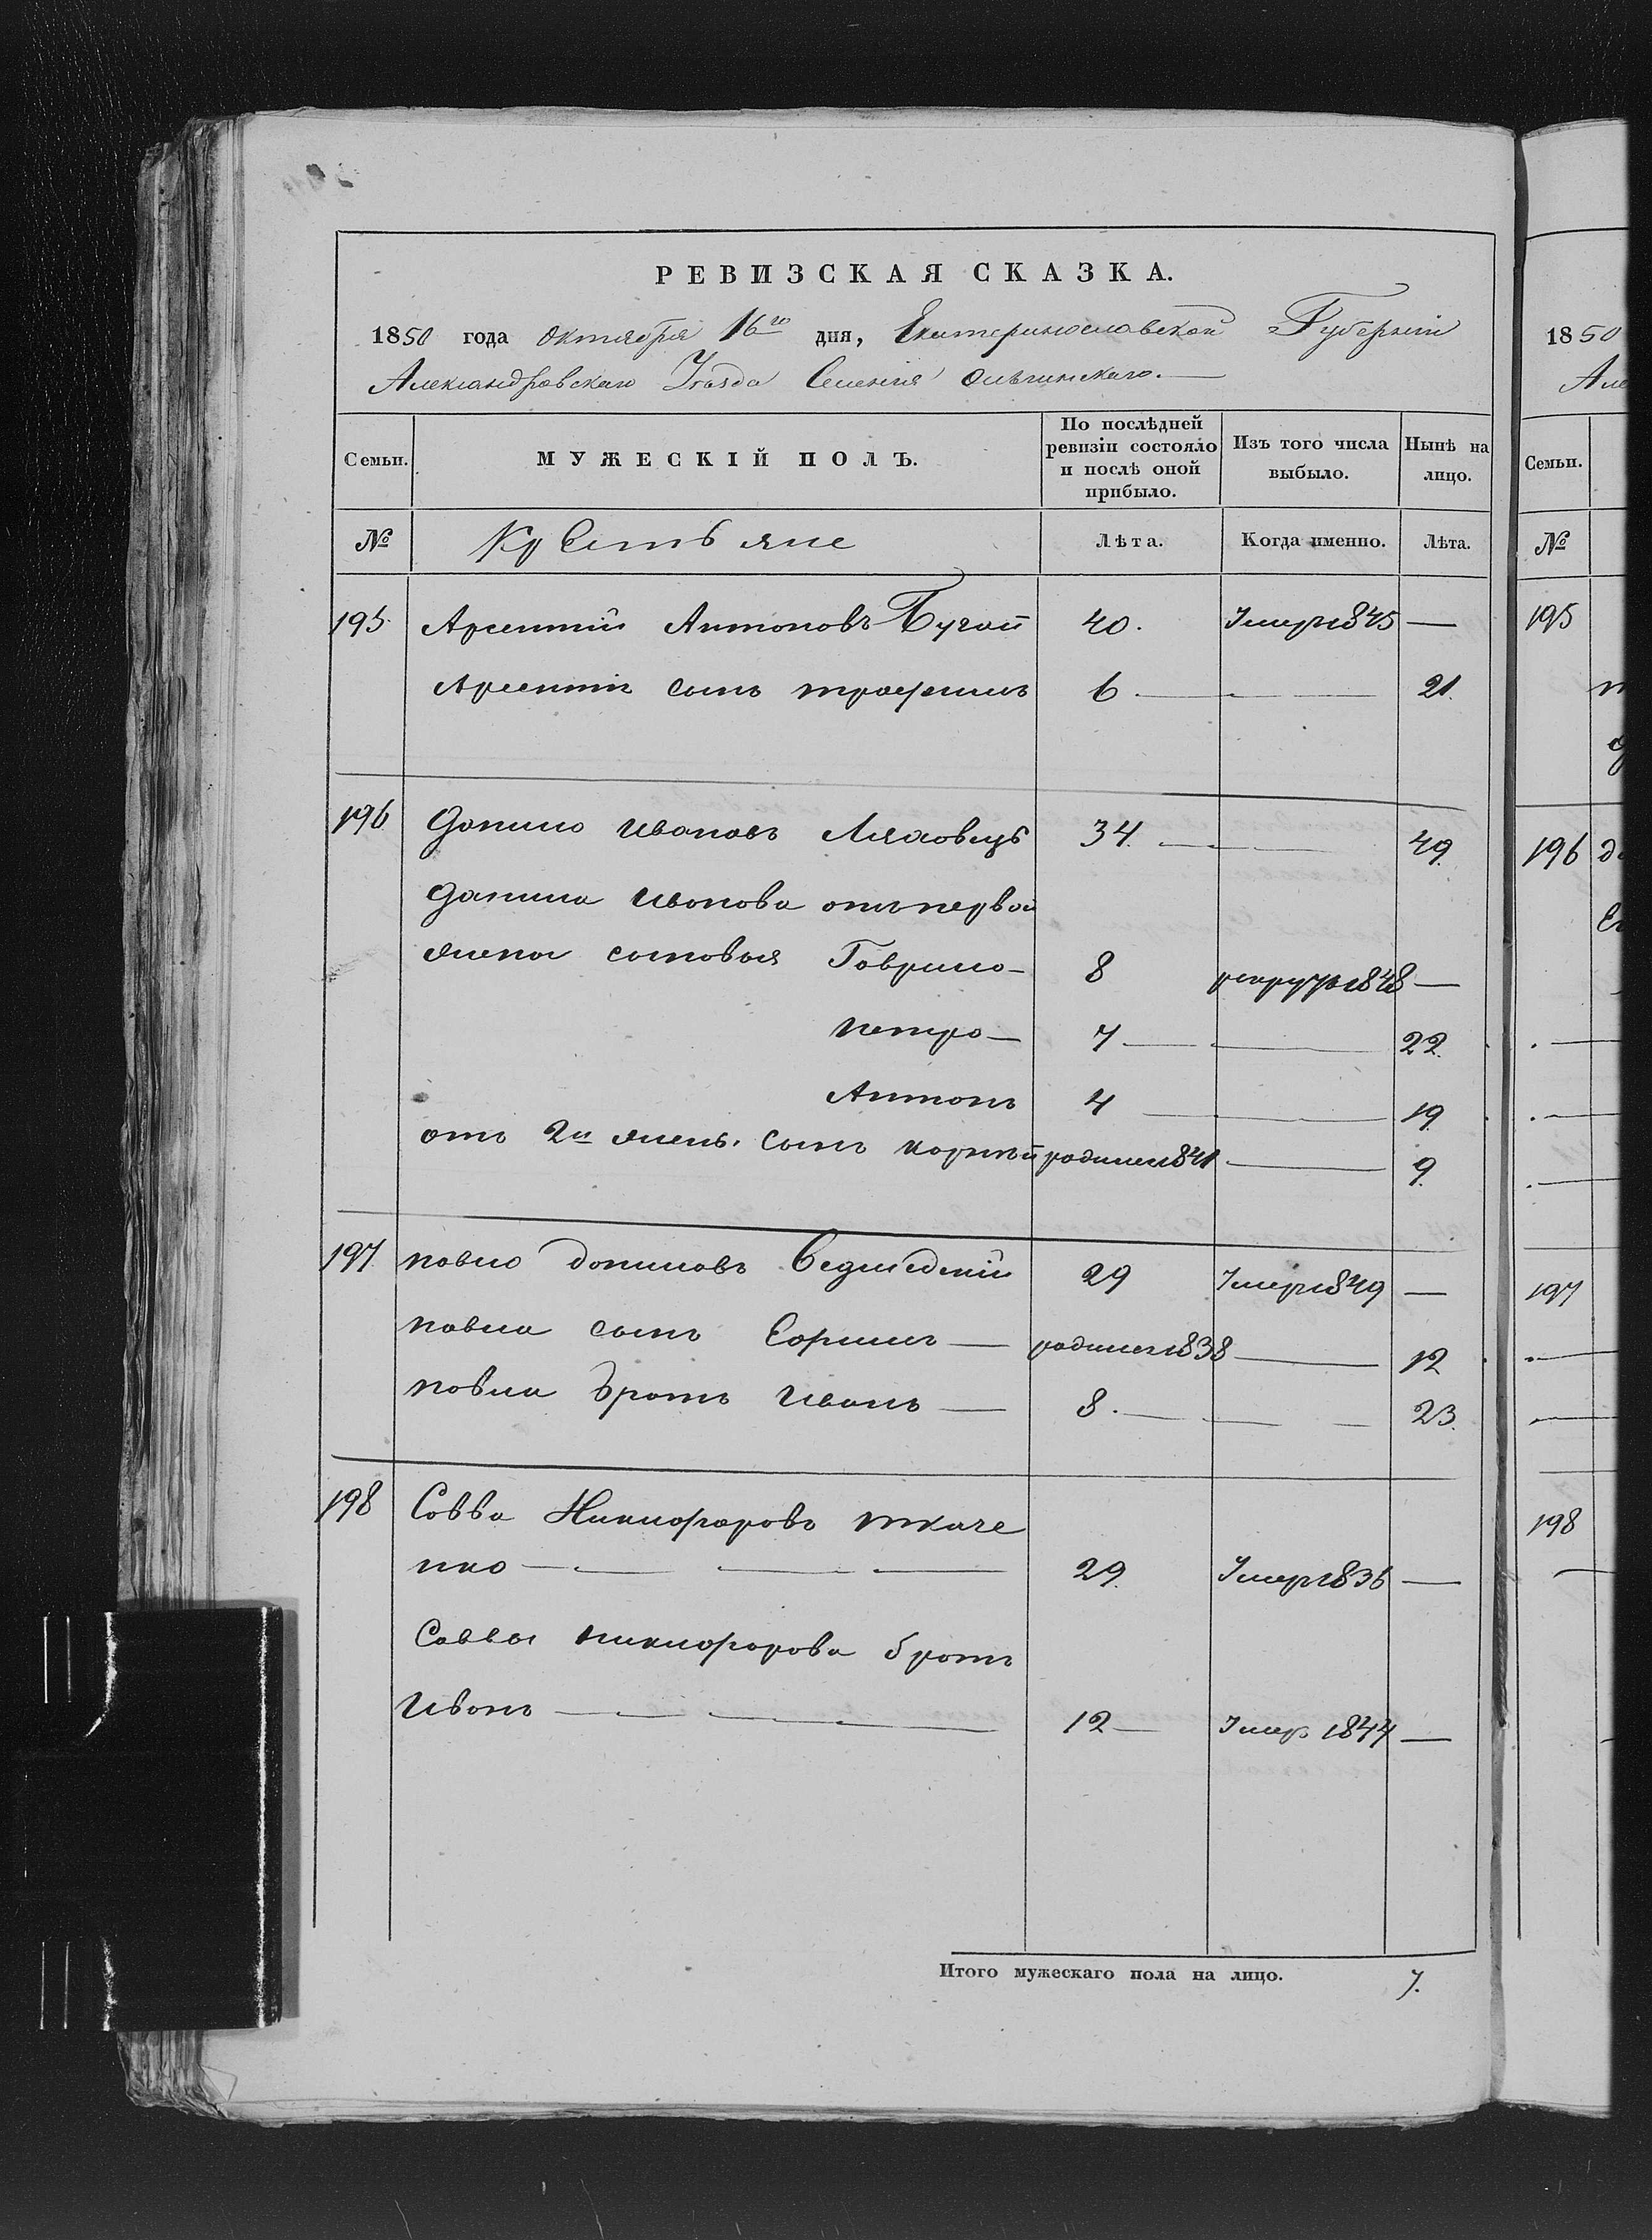 РЕВИЗСКАЯ СКАЗКА.
1850 года октября 16го дня, Екатеринославской Губерніи
Александровскаго Уезда Селенія Ольгинскаго.—
Семьи. МУЖЕСКІЙ ПОЛЪ. По послѣдней ревизіи состояло и послѣ оной прибыло. Изъ того числа выбыло. Нынѣ на лицо.
№ Крестьяне Лѣта. Когда именно. Лѣта.
195. Арсентій Антоновъ Бугай 40. Умеръ 1845 —
Арсентія сынъ трофимъ 6. — — 21.
196 Данило Ивановъ Ляховецъ 34. — — 49.
Данила Иванова отъ первой
жены сыновья Гаврило — 8 рекрутъ 1848 —
петро — 7 — — 22.
Антонъ 4 — — 19.
отъ 2й жены. сынъ корнѣй родился 1841 — 9.
197. павло даниловъ Ведмедскій 29 Умеръ 1849 —
павла сынъ Ефимъ — родился 1838 — 12
павла братъ Иванъ — 8. — — 23.
198 Савва Никифоровъ ткаче
нко — — — 29. Умеръ 1836 —
Саввы никифорова братъ
Иванъ — — — 12 — Умеръ 1844 —
Итого мужескаго пола на лицо. 7.
1850
Але
Семьи.
№
195
196
197
198